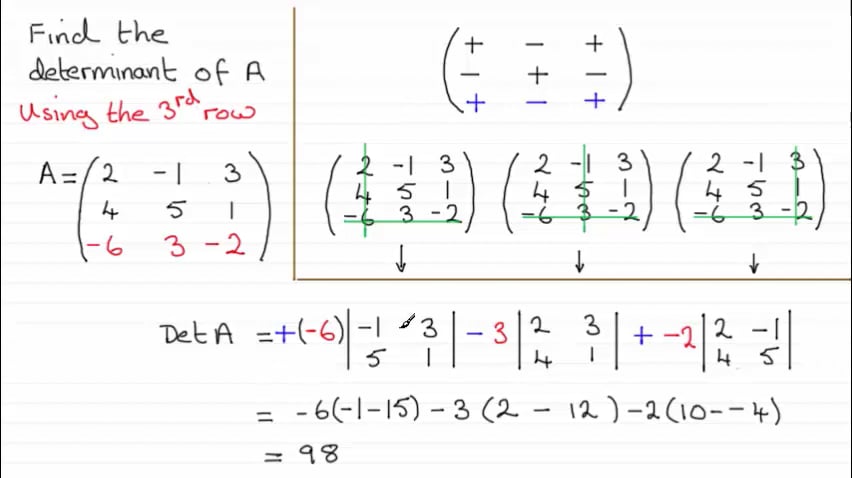 Find the
determinant of A
Using the 3rd row
A = ( 2 -1 3
4 5 1
-6 3 -2 )
( + - +
- + -
+ - + )
( 2 -1 3
4 5 1
-6 3 -2 )
( 2 -1 3
4 5 1
-6 3 -2 )
( 2 -1 3
4 5 1
-6 3 -2 )
↓ ↓ ↓
Det A = +(-6) | -1 3 | - 3 | 2 3 | + -2 | 2 -1 |
| 5 1 | | 4 1 | | 4 5 |
= -6(-1-15) -3 (2 - 12) -2(10--4)
= 98